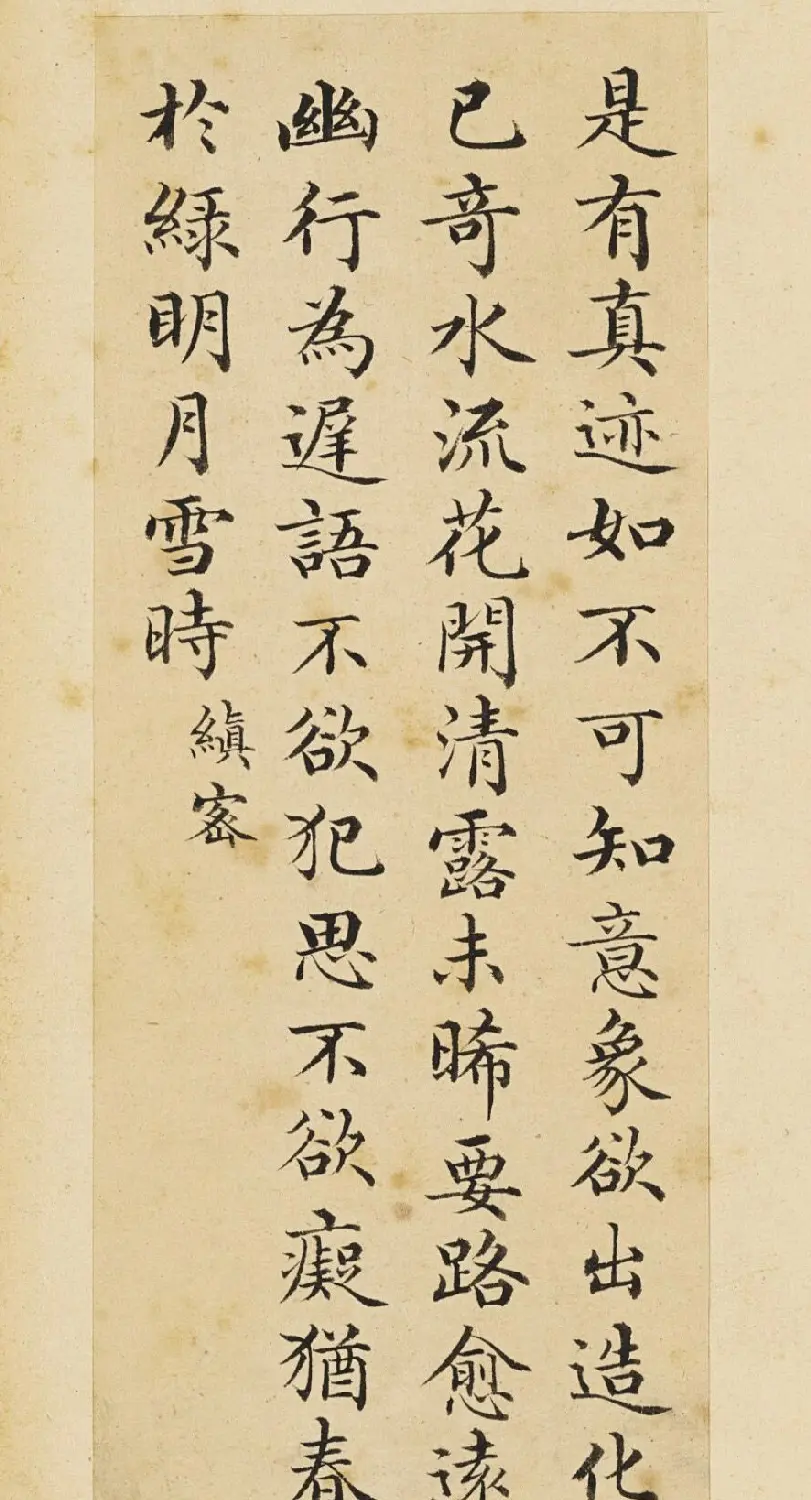 是有真迹如不可知意象欲出造化
已奇水流花開清露未晞要路愈遠
幽行為遲語不欲犯思不欲癡猶春
於綠明月雪時
縝密